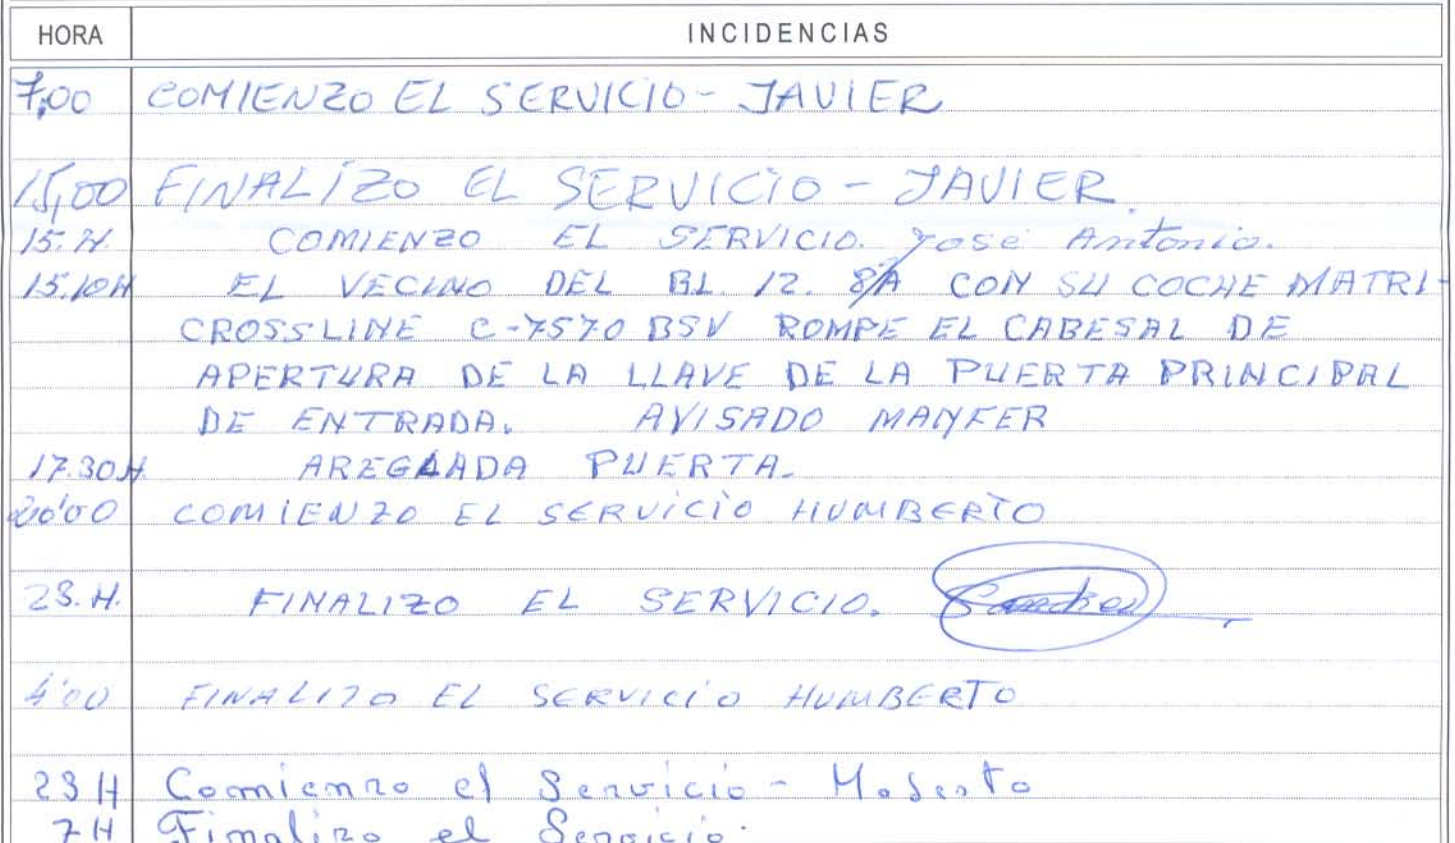 HORA INCIDENCIAS
7,00 COMIENZO EL SERVICIO - JAVIER
15,00 FINALIZO EL SERVICIO - JAVIER.
15. H. COMIENZO EL SERVICIO. José Antonio.
15.10H EL VECINO DEL BL. 12. 8ºA CON SU COCHE MATRI-
CROSSLINE C-7570 BSV ROMPE EL CABESAL DE
APERTURA DE LA LLAVE DE LA PUERTA PRINCIPAL
DE ENTRADA. AVISADO MANFER
17.30H. AREGLADA PUERTA.
20'00 COMIENZO EL SERVICIO HUMBERTO
23. H. FINALIZO EL SERVICIO.
4'00 FINALIZO EL SERVICIO HUMBERTO
23 H Comienzo el Servicio - Modesto
7 H Finalizo el Servicio.